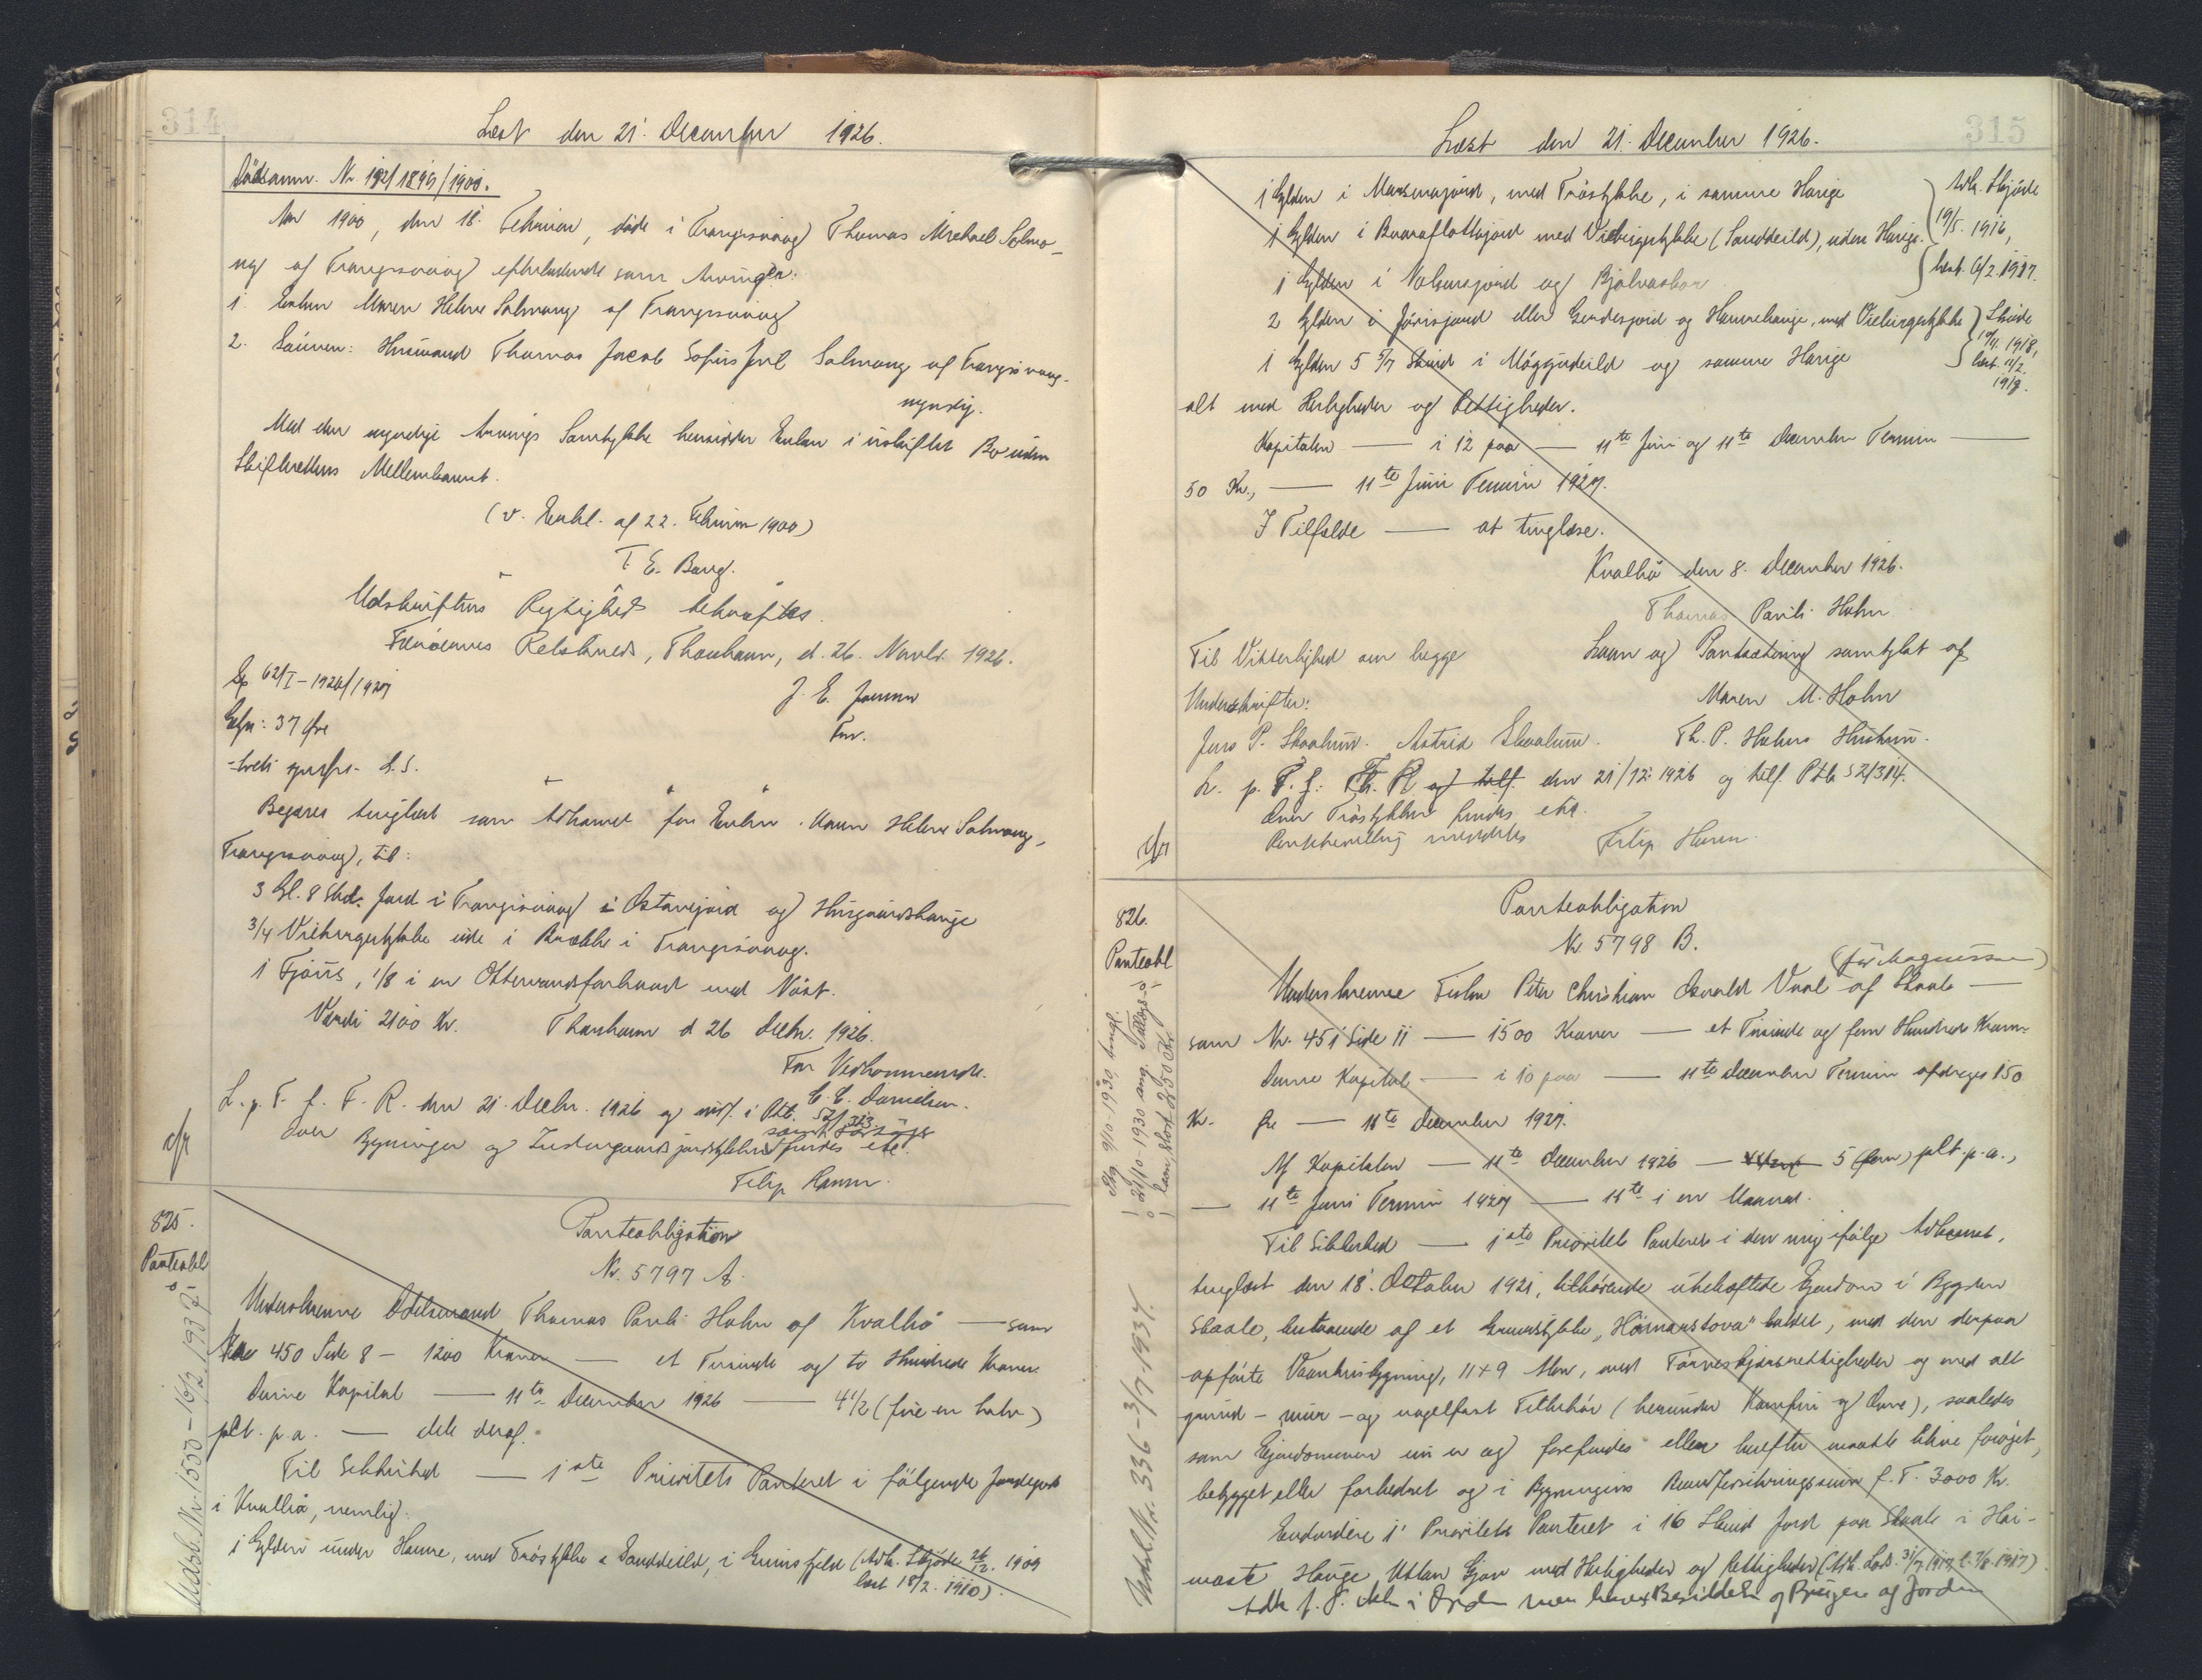 314
Læst den 21. December 1926.
Dödsanm. Nr 192/1899/1900.
Aar 1900, den 18. Februar, døde i Trangisvaag Thomas Michael Salmo-
ny af Trangisvaag efterladende som Arvinger:
1. Enken Maren Helene Salmony af Trangisvaag
2. Sønnen: Husmand Thomas Jacob Sofus Juul Salmony af Trangisvaag.
myndig.
Med den myndige Arvings Samtykke hensidder Enken i uskiftet Bo uden
Skifterettens Mellemkomst.
(v. Enkl. af 22. Februar 1900)
T. E. Bang.
Udskriftens Rigtighed bekræftes.
Færøernes Retskreds, Thorshavn, d. 26. Novbr. 1926.
62/I-1926/1927
Gebyr: 37 Øre
J. E. Jensen
Fm.
L. S.
Begæres tinglæst som Adkomst for Enken Maren Helene Salmony,
Trangisvaag, til:
3 Gl. 8 Skd. Jord i Trangisvaag i Østarejord og Husgaardshauge
3/4 Virkingestykke ude i Brække i Trangisvaag.
1 Fjøs, 1/8 i en Ottemandsfarbaad med Nöst.
Værdi 2100 Kr. Thorshavn d 26 Decbr. 1926.
For Vedkommende.
C. E. Danielsen.
L. p. T. f. F. R. den 21. Decbr. 1926 og indf. i Ptb. SZ/323.
over Bygninger og Indengaardsjordstykker findes etc.
Filip Hansen.
825.
Panteobl
Panteobligation
Nr. 5797 A.
Underskrevne Odelsmand Thomas Pauli Holm af Kvalbø — som
Nr 450 Side 8 — 1200 Kroner — et Tusinde og to Hundrede Kroner.
Denne Kapital — 11te December 1926 — 4 1/2 (fire en halv)
pCt. p.a. — dele deraf.
Til Sikkerhed — 1ste Prioritets Panteret i følgende Jordegods
i Kvalbø, nemlig:
1 Gylden under Hamre, med Tröstykke i Sanddeild, i Grimsfjeld (Adk. Skjøde 26/2. 1909
læst 18/2. 1910):
315
Læst den 21. December 1926.
1 Gylden i Marknajord, med Tröstykke, i samme Hauge
1 Gylden i Buaraflottujord med Virkingestykke (Sanddeild), uden Hauge.
1 Gylden i Nolsursjord og Bjolvasbor
Adk. Skjøde
19/5. 1916,
læst. 6/2. 1917.
2 Gylden i Jørisjord eller Gerdesjord og Hamrehauge, med Virkingestykke
1 Gylden 5 5/7 Skind i Møggudeild og samme Hauge
Skjøde
1918,
læst 11/2.
1918.
alt med Herligheder og Rettigheder.
Kapitalen — i 12 paa — 11te Juni og 11te December Termin —
50 Kr., — 11te Juni Termin 1927.
I Tilfælde — at tinglæse.
Kvalbø den 8. December 1926.
Thomas Pauli Holm
Til Vitterlighed om begge
Underskrifter:
Laan og Pantsætning samtykt af
Maren M. Holm
Jens P. Skaalum. Astrid Skaalum. Th. P. Holms Hustru.
L. p. T. f. F. R. den 21/12. 1926 og tilf. Ptb SZ/314.
Over Tröstykkerne findes etc.
Filip Hansen.
826.
Panteobl
Panteobligation
Nr 5798 B.
(før Magnussen)
Underskrevne Fisker Peter Christian Osvald Vaal af Skaale —
som Nr. 451 Side 11 — 1500 Kroner — et Tusinde og fem Hundrede Kroner.
Denne Kapital — i 10 paa — 11te December Termin afdrages 150
Kr. Øre — 11te December 1927.
Af Kapitalen — 11te December 1926 — 5 (fem) pCt. p.a.,
— 11te Juni Termin 1927 — 11te i en Maaned.
Til Sikkerhed — 1ste Prioritets Panteret i den mig ifølge Adkomst,
tinglæst den 18. October 1921, tilhørende ubehæftede Ejendom i Bygden
Skaale, bestaaende af et Grundstykke „Hörnanstova" kaldet, med den derpaa
opførte Vaaningsbygning, 11x9 Alen, med Törveskjærsrettigheder og med alt
grund- mur- og nagelfast Tilbehør (herunder Komfur og Ovne), saaledes
som Ejendommen nu er og forefindes eller herefter maatte blive forøget,
bebygget eller forbedret og i Bygningens Brandforsikringssum f. T. 3000 Kr.
Endvidere 1' Prioritets Panteret i 16 Skind Jord paa Skaale i Høi-
maste Hauge Uttan Gjov med Herligheder og Rettigheder (Adk. Lod. 31/7 1917, l. 7/8. 1917)
Adk f. S. ikke i Orden men haves Besiddelse og Brugen af Jorden
Udsl. Nr. 336 - 3/7. 1934.